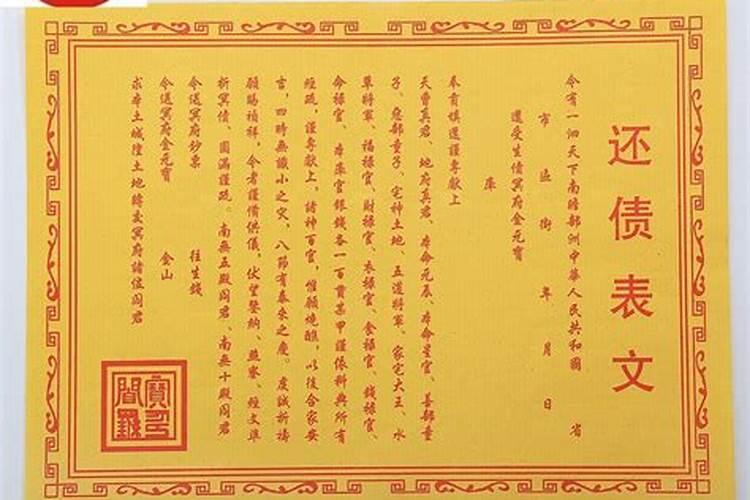 还债表文
今有一泗天下南瞻部洲中華人民共和國 省
市 區 街 年 月 日
還受生債冥府金元寶
庫
奉有填還謹專獻上
天曹真君、地府真君、本命元辰、本命星官、善部童
子、惡部童子、宅神土地、五道將軍、家宅大王、水
草將軍、福祿官、財祿官、衣祿官、食祿官、錢祿官、
命祿官、本庫官銀錢各一百貫某甲謹依科典所有
經疏，謹專獻上，諸神百官，惟願燒醮，以後合家安
吉，四時無讖小之灾，八節有泰來之慶。虔誠祈禱
願賜禎祥，今者謹備供儀，伏望鑒納、照察、經文準
折冥債、圓滿謹疏。南無五殿阎君、南無十殿阎君
令送冥府鈔票 往生錢
令送冥府金元寶 金山
求本土城隍土地轉交冥府諸位阎君